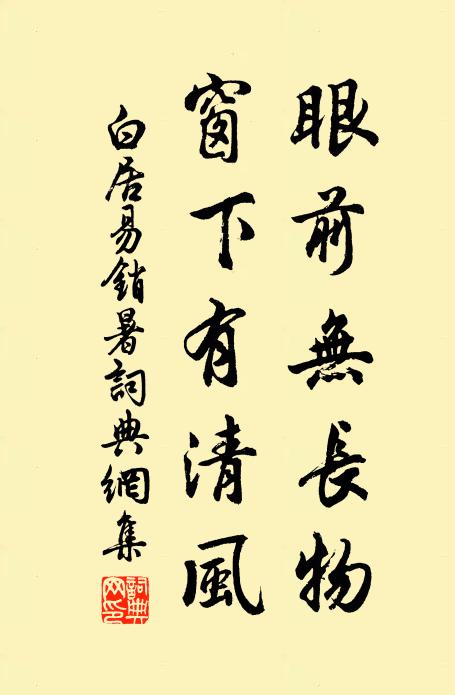 眼前無長物
窗下有清風
白居易銷暑詞典網集
詞典网印